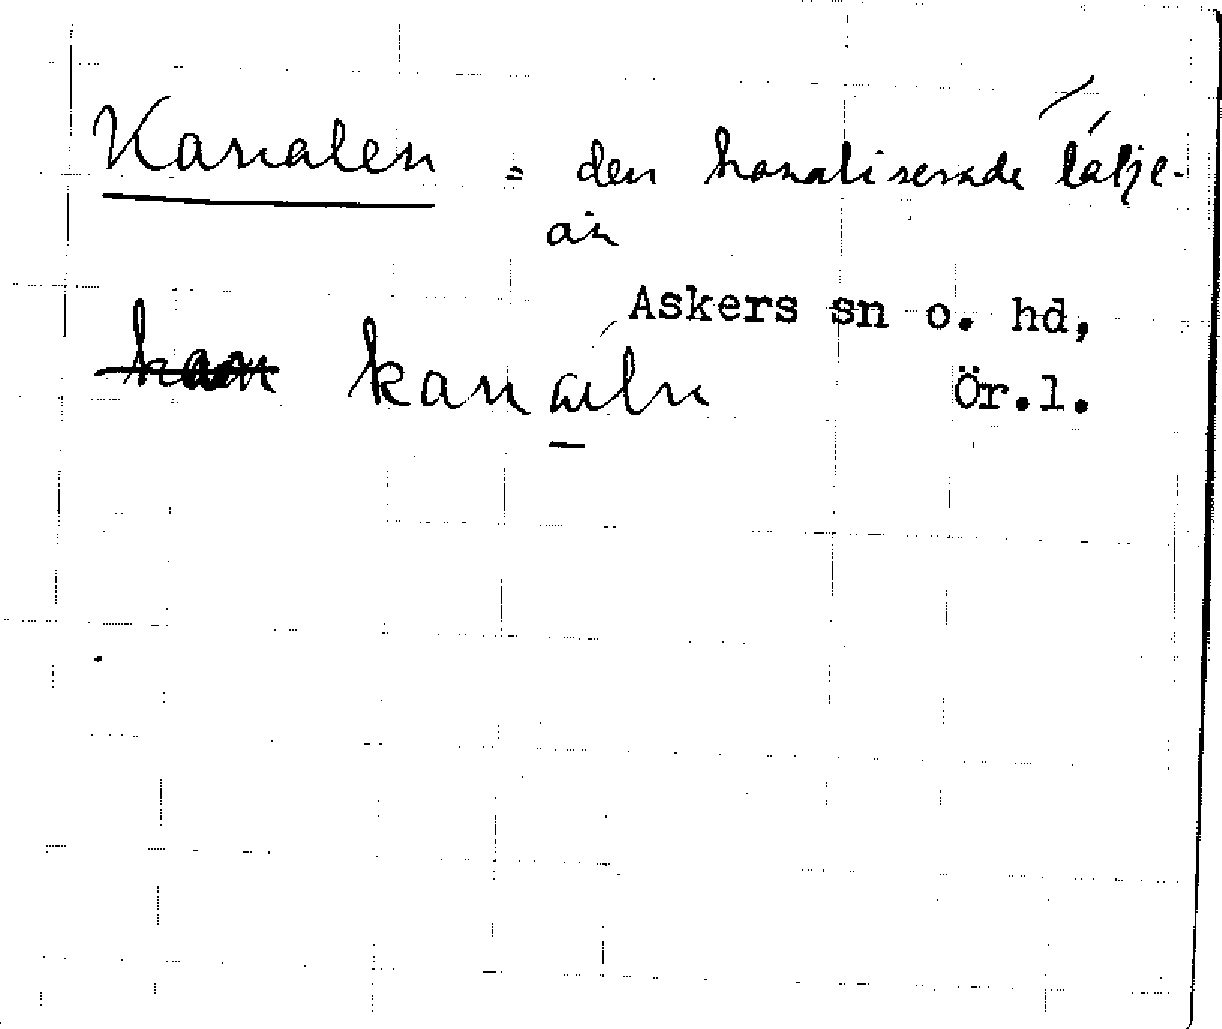 Kanalen = den kanaliserade Täljeån
Askers sn o. hd,
kanaln
Ör.l.